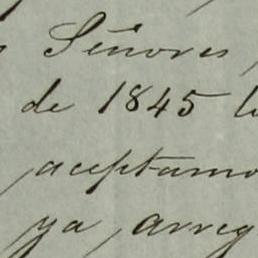 Señores
de 1845
aceptamo
ya, arreg